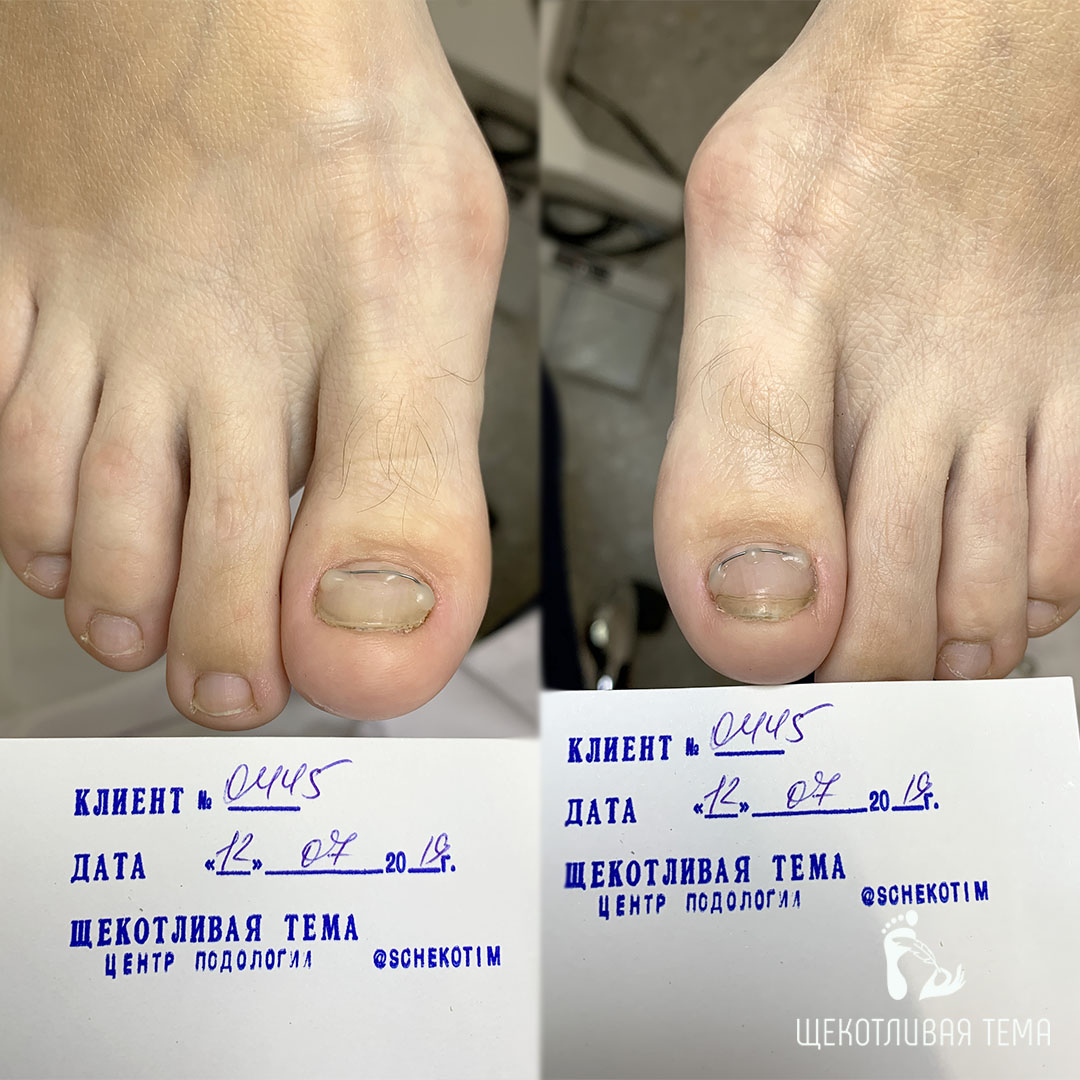 КЛИЕНТ № 0445
ДАТА «12» 07 2019г.
ЩЕКОТЛИВАЯ ТЕМА
ЦЕНТР ПОДОЛОГИИ @SCHEKOTIM
КЛИЕНТ № 0445
ДАТА «12» 07 2019г.
ЩЕКОТЛИВАЯ ТЕМА
ЦЕНТР ПОДОЛОГИИ @SCHEKOTIM
ЩЕКОТЛИВАЯ ТЕМА